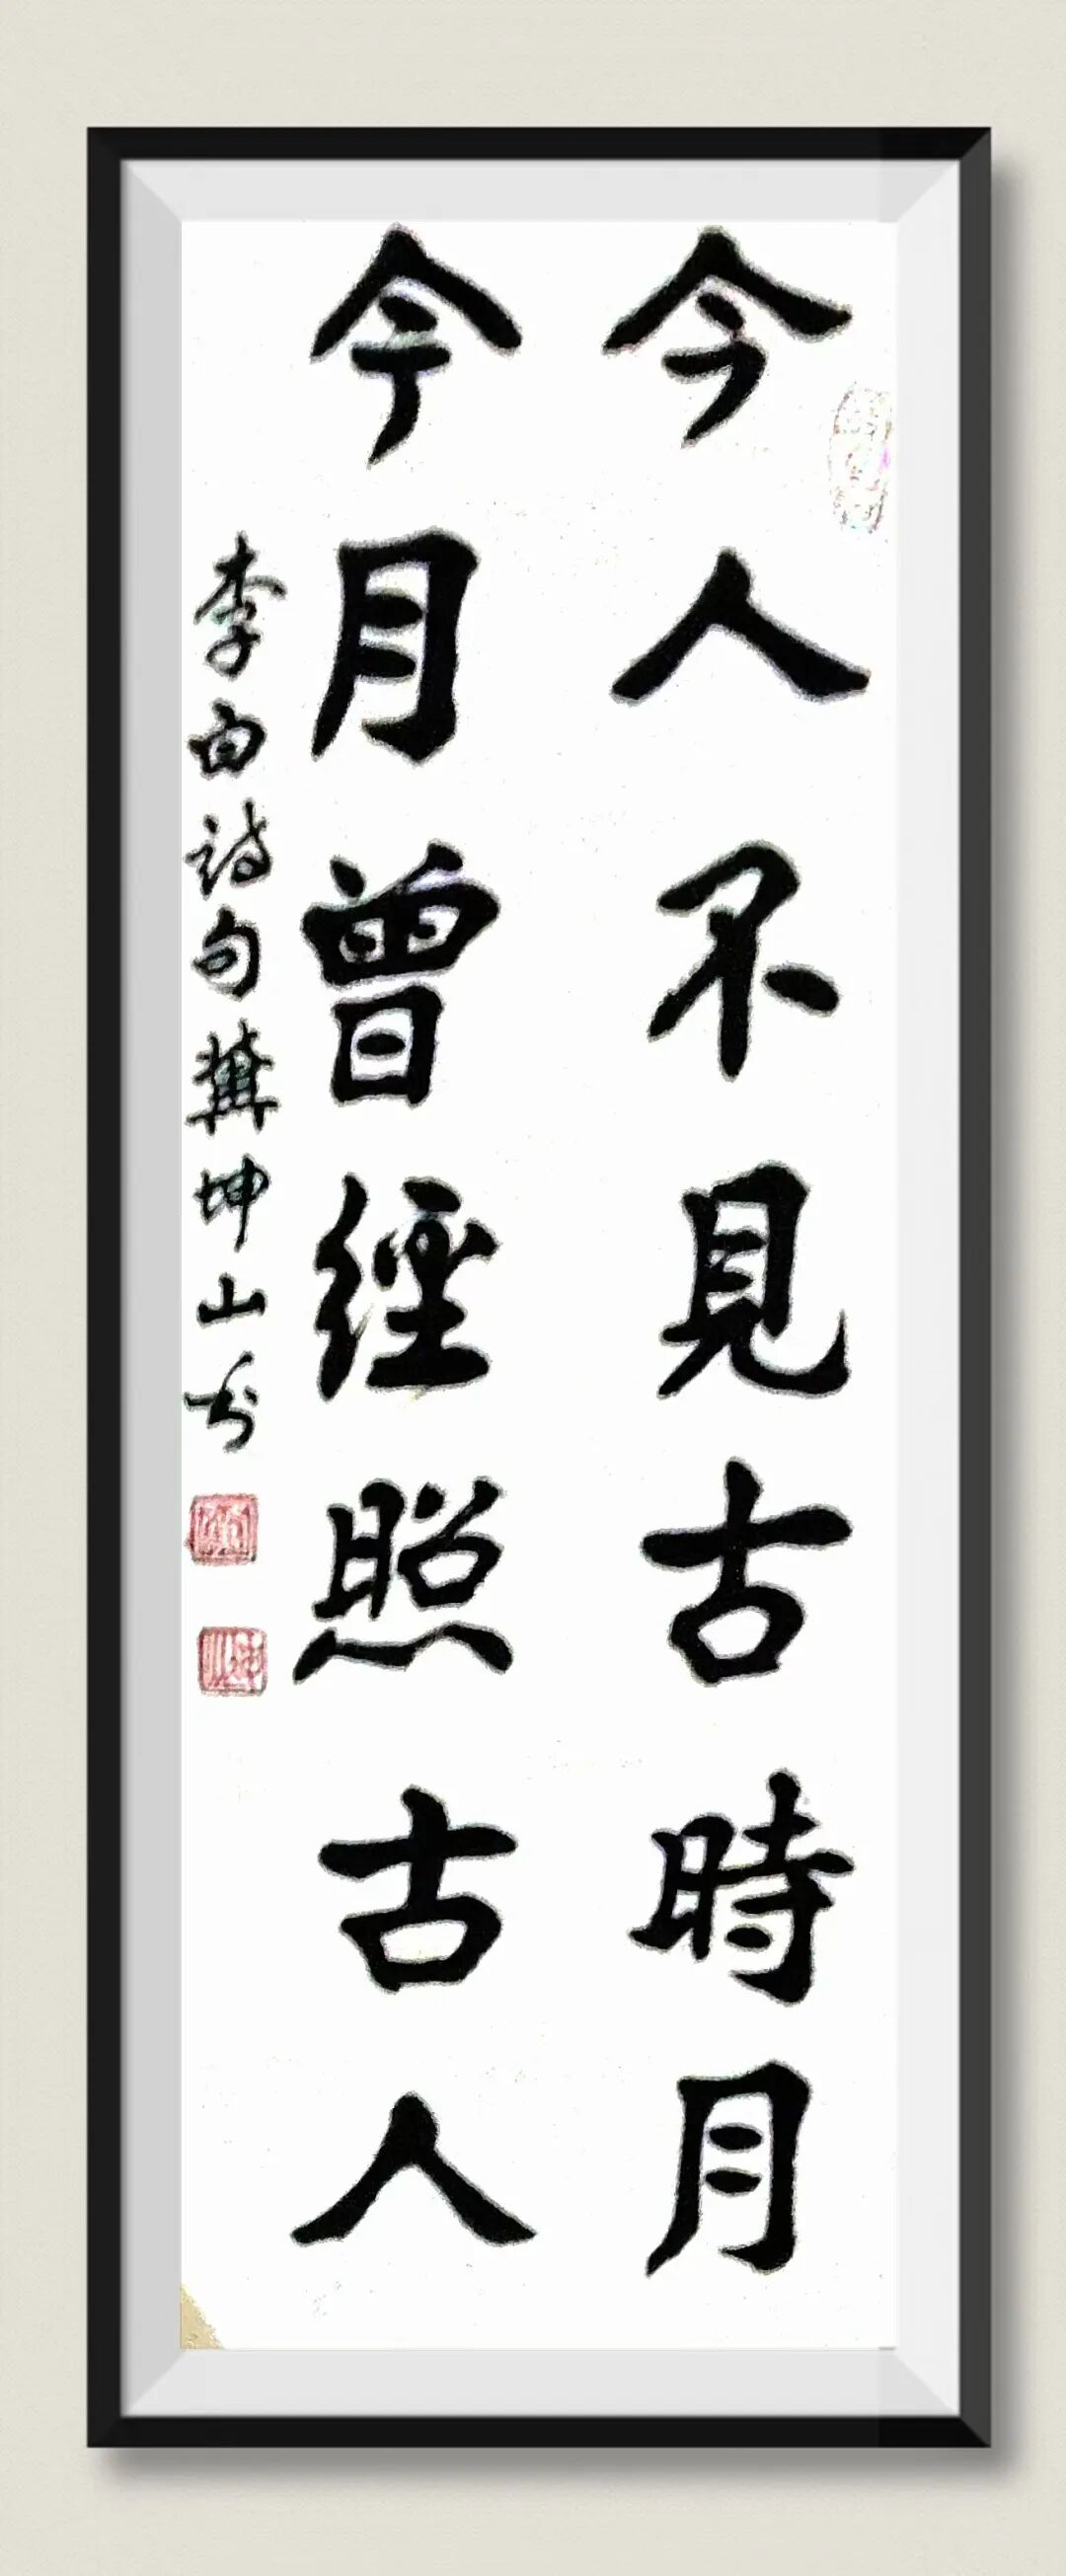 今人不見古時月
今月曾經照古人
李白詩句龔坤山书